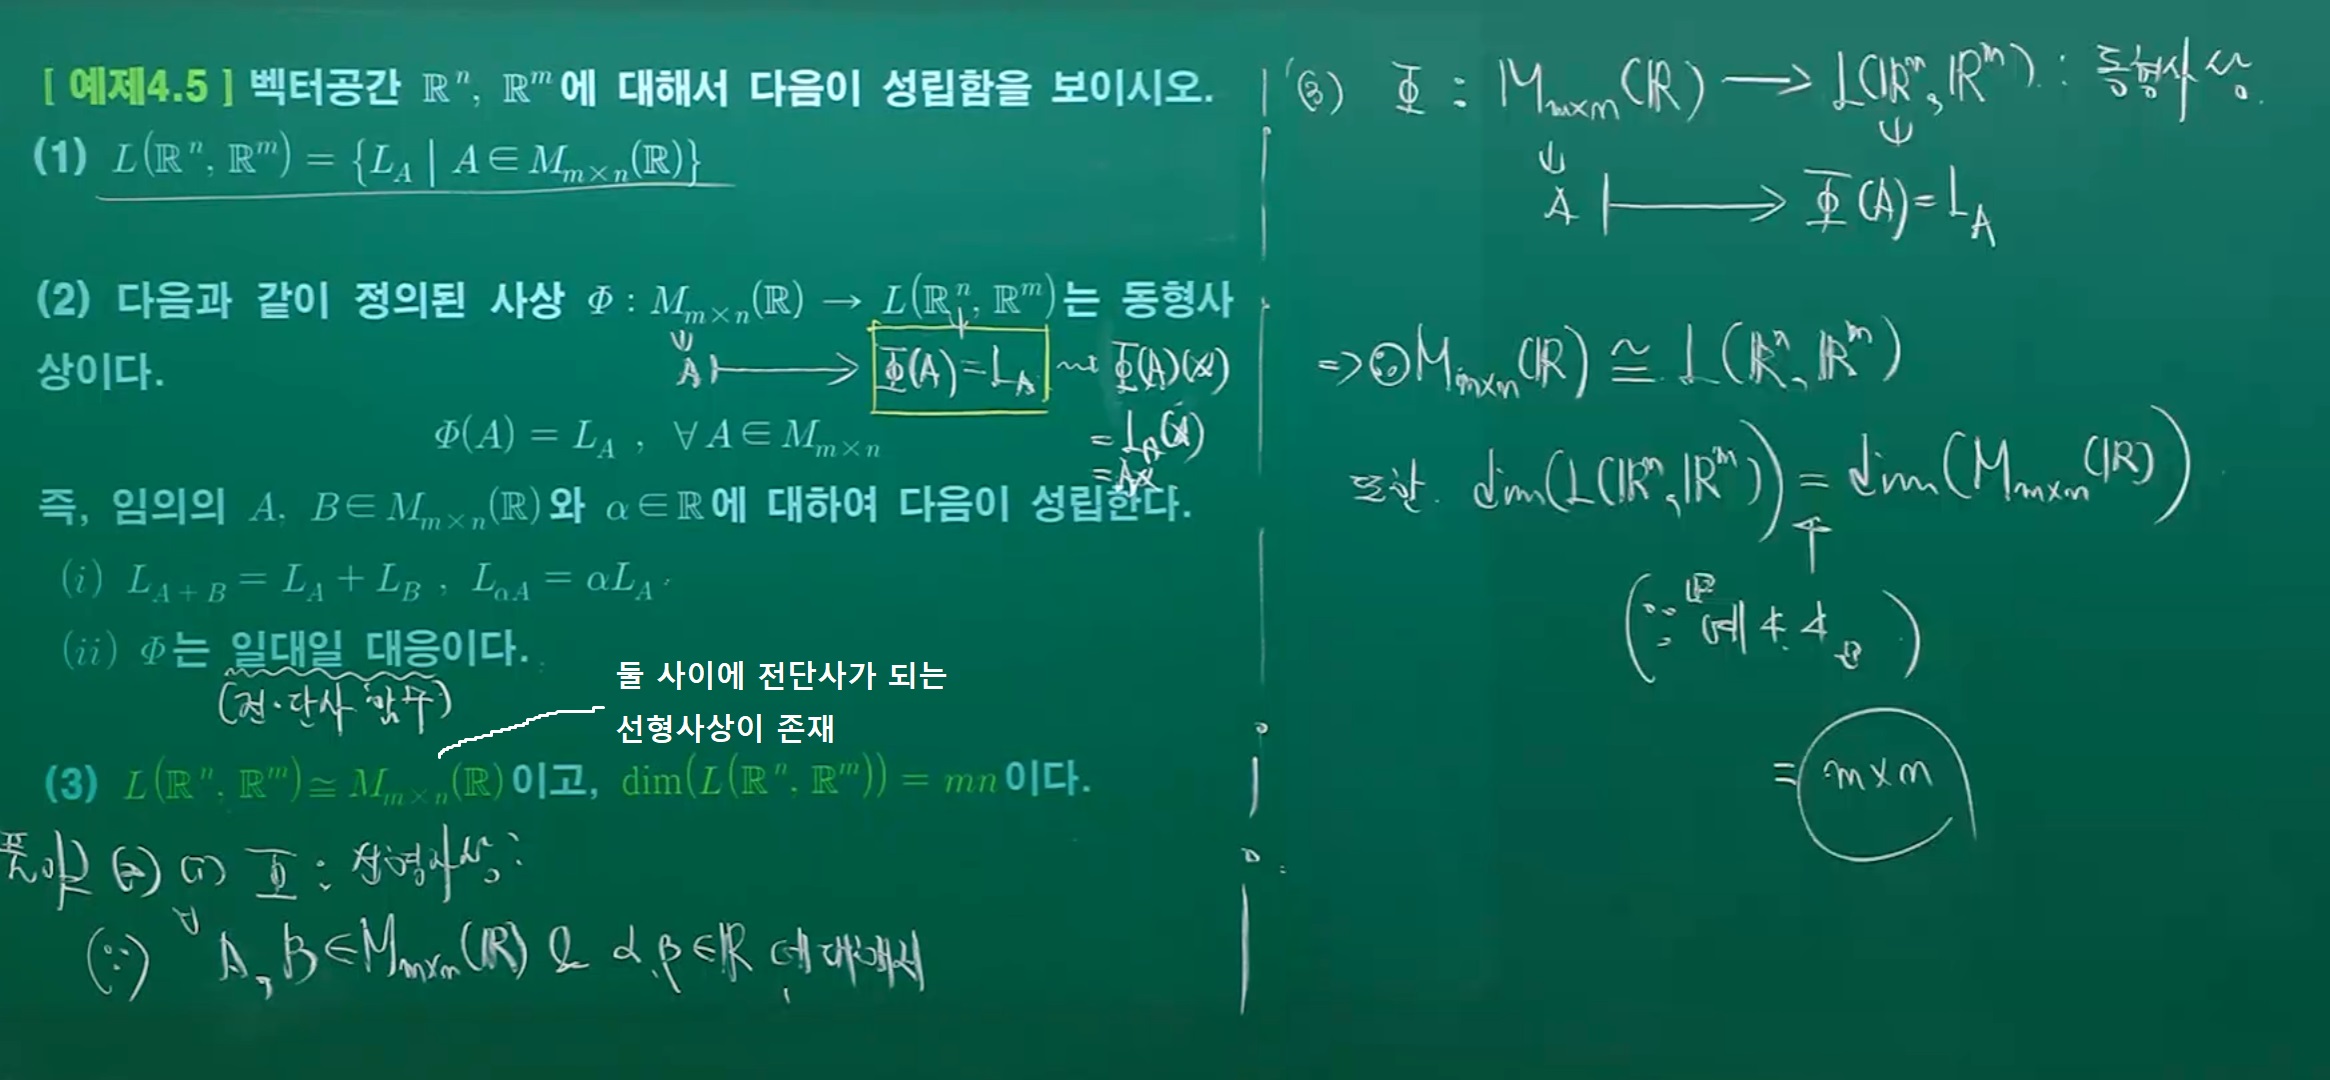 [ 예제4.5 ] 벡터공간 ℝⁿ, ℝᵐ에 대해서 다음이 성립함을 보이시오.
(1) L(ℝⁿ, ℝᵐ) = {L_A | A ∈ M_{m×n}(ℝ)}
(2) 다음과 같이 정의된 사상 Φ : M_{m×n}(ℝ) → L(ℝⁿ, ℝᵐ)는 동형사
상이다.
A ↦ Φ(A) = L_A ⇝ Φ(A)(x)
= L_A(x)
= Ax
Φ(A) = L_A , ∀A ∈ M_{m×n}
즉, 임의의 A, B ∈ M_{m×n}(ℝ)와 α ∈ ℝ에 대하여 다음이 성립한다.
(i) L_{A+B} = L_A + L_B , L_{αA} = αL_A
(ii) Φ는 일대일 대응이다.
(전·단사 함수)
둘 사이에 전단사가 되는
선형사상이 존재
(3) L(ℝⁿ, ℝᵐ) ≅ M_{m×n}(ℝ)이고, dim(L(ℝⁿ, ℝᵐ)) = mn이다.
풀이 (2) (i) Φ : 선형사상 :
(∵) ∀A, B ∈ M_{m×n}(ℝ) & α, β ∈ ℝ 에 대해서
(3) Φ : M_{m×n}(ℝ) → L(ℝⁿ, ℝᵐ) : 동형사상.
A ↦ Φ(A) = L_A
⇒ ∴ M_{m×n}(ℝ) ≅ L(ℝⁿ, ℝᵐ)
또한. dim(L(ℝⁿ, ℝᵐ)) = dim(M_{m×n}(ℝ))
↑
(∵ 예 4.4)
= m×n